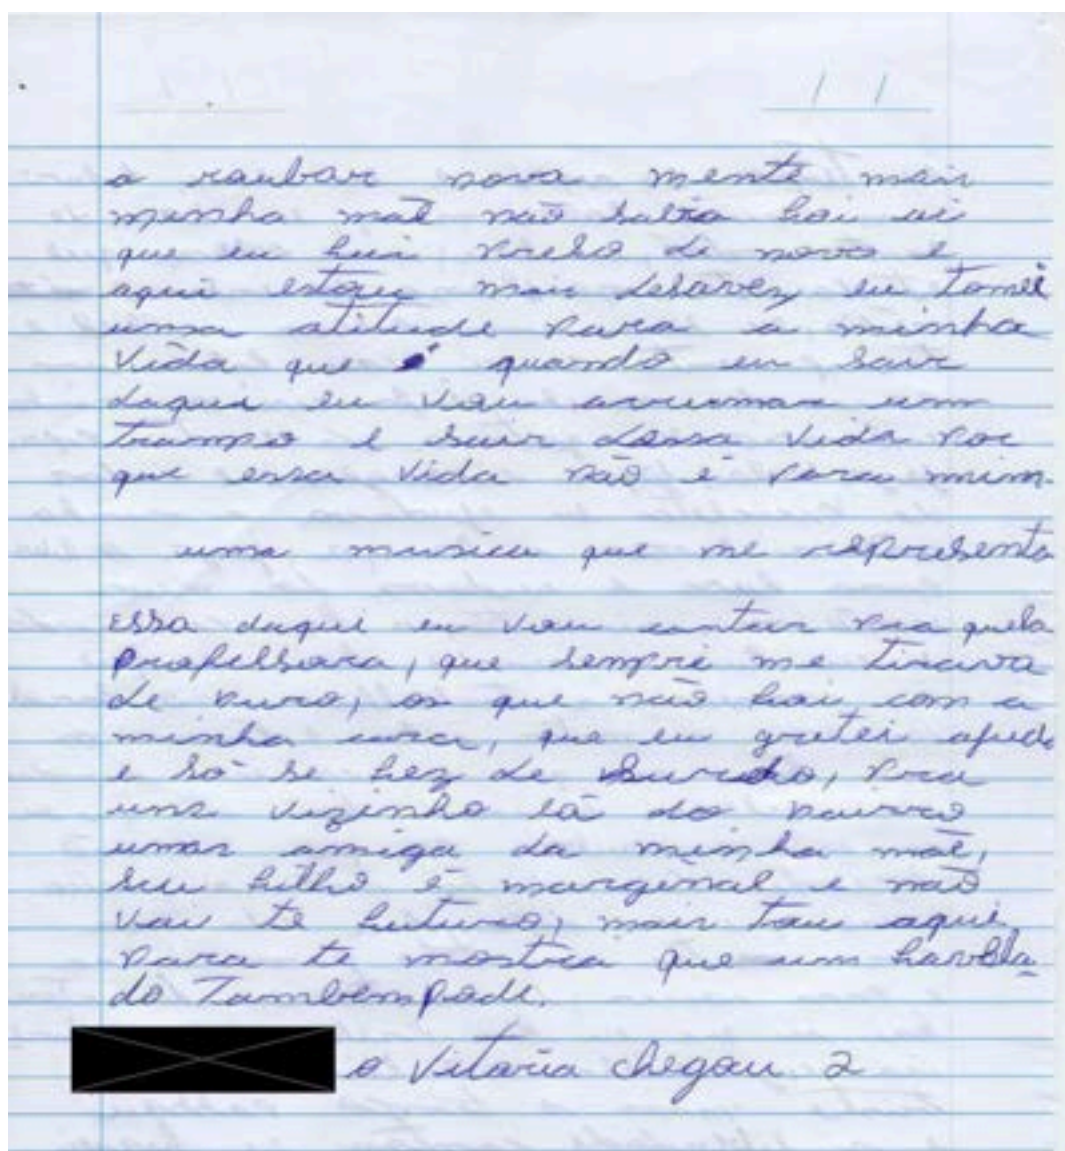 a roubar nova mente mais
minha mãe não sabia foi ai
que eu fui preso de novo e
aqui estou mais desavez eu tomei
uma atitude para a minha
vida que quando eu sair
daqui eu vou arrumar um
trampo e sair dessa vida por
que essa vida não é para mim.
uma musica que me represento
Essa daqui eu vou cantar pra quela
professora, que sempre me tirava
de burro, os que não foi com a
minha cara, que eu gritei ajuda
e só se fez de surdo, pra
uns vizinho lá do bairro
umas amiga da minha mãe,
seu filho é marginal e não
vai te futuro, mais tou aqui
para te mostra que um favela
do Tambem pode.
a Vitoria chegou 2